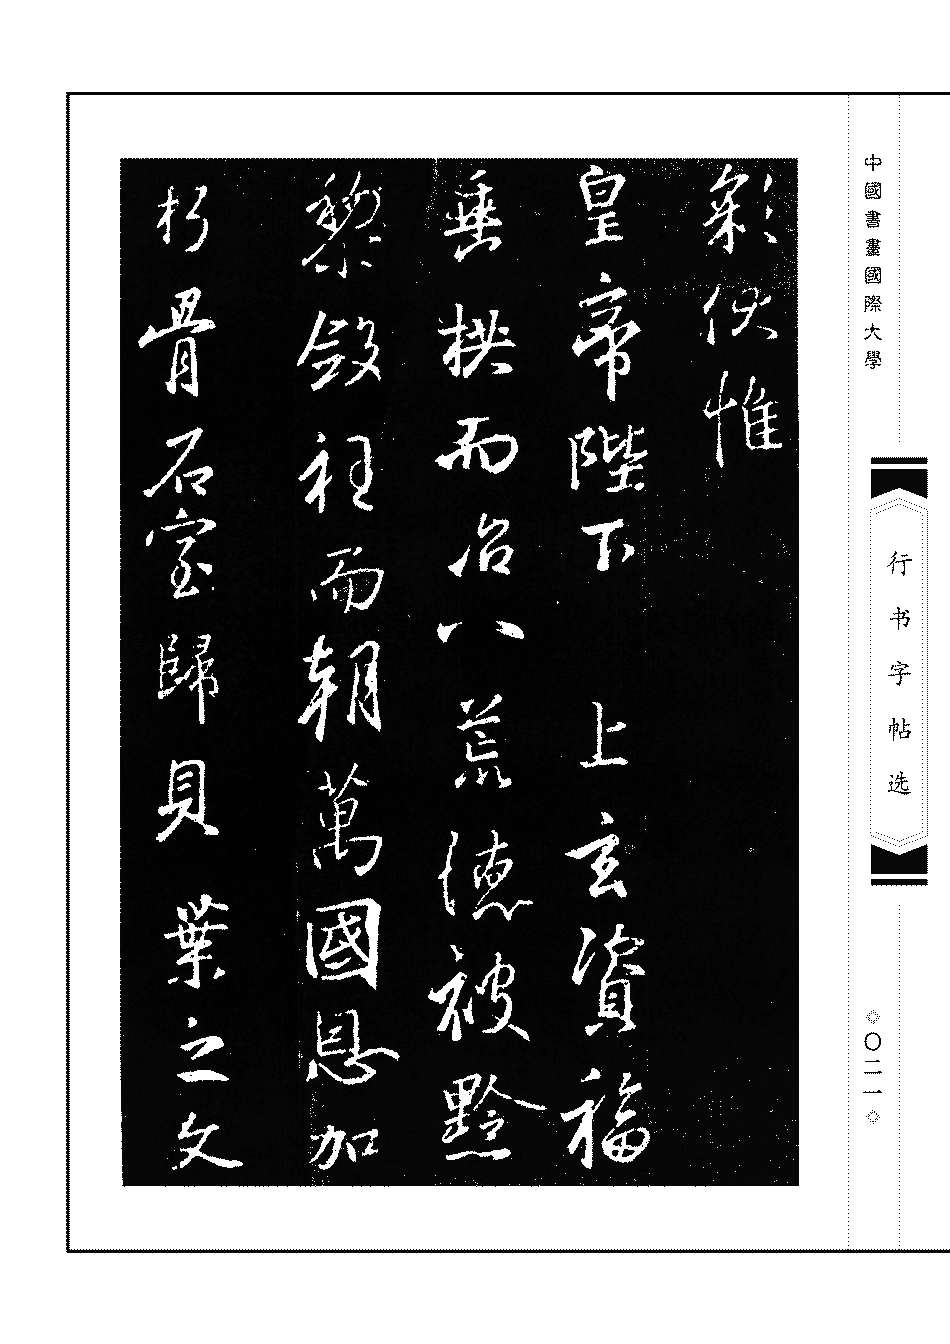 中國書畫國際大學
行书字帖选
〇二一
彩伏惟
皇帝陛下 上玄資福
垂拱而治八荒德被黔
黎斂衽而朝萬國恩加
朽骨石室歸貝葉之文